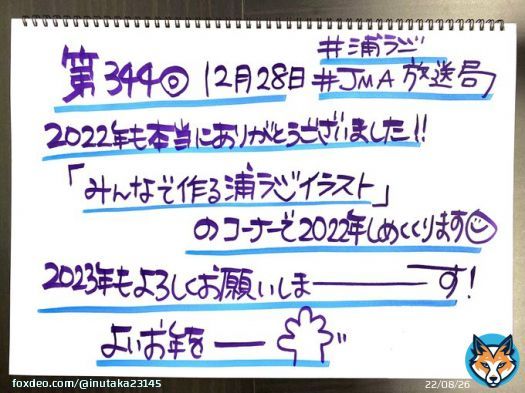 第344回 12月28日
#浦ラジ
#JMA放送局
2022年も本当にありがとうございました!!
「みんなで作る浦ラジイラスト」
のコーナーで2022年しめくくります
2023年もよろしくお願いしま―――す!
よいお年を―
foxdeo.com/@inutaka23145
22/08/26